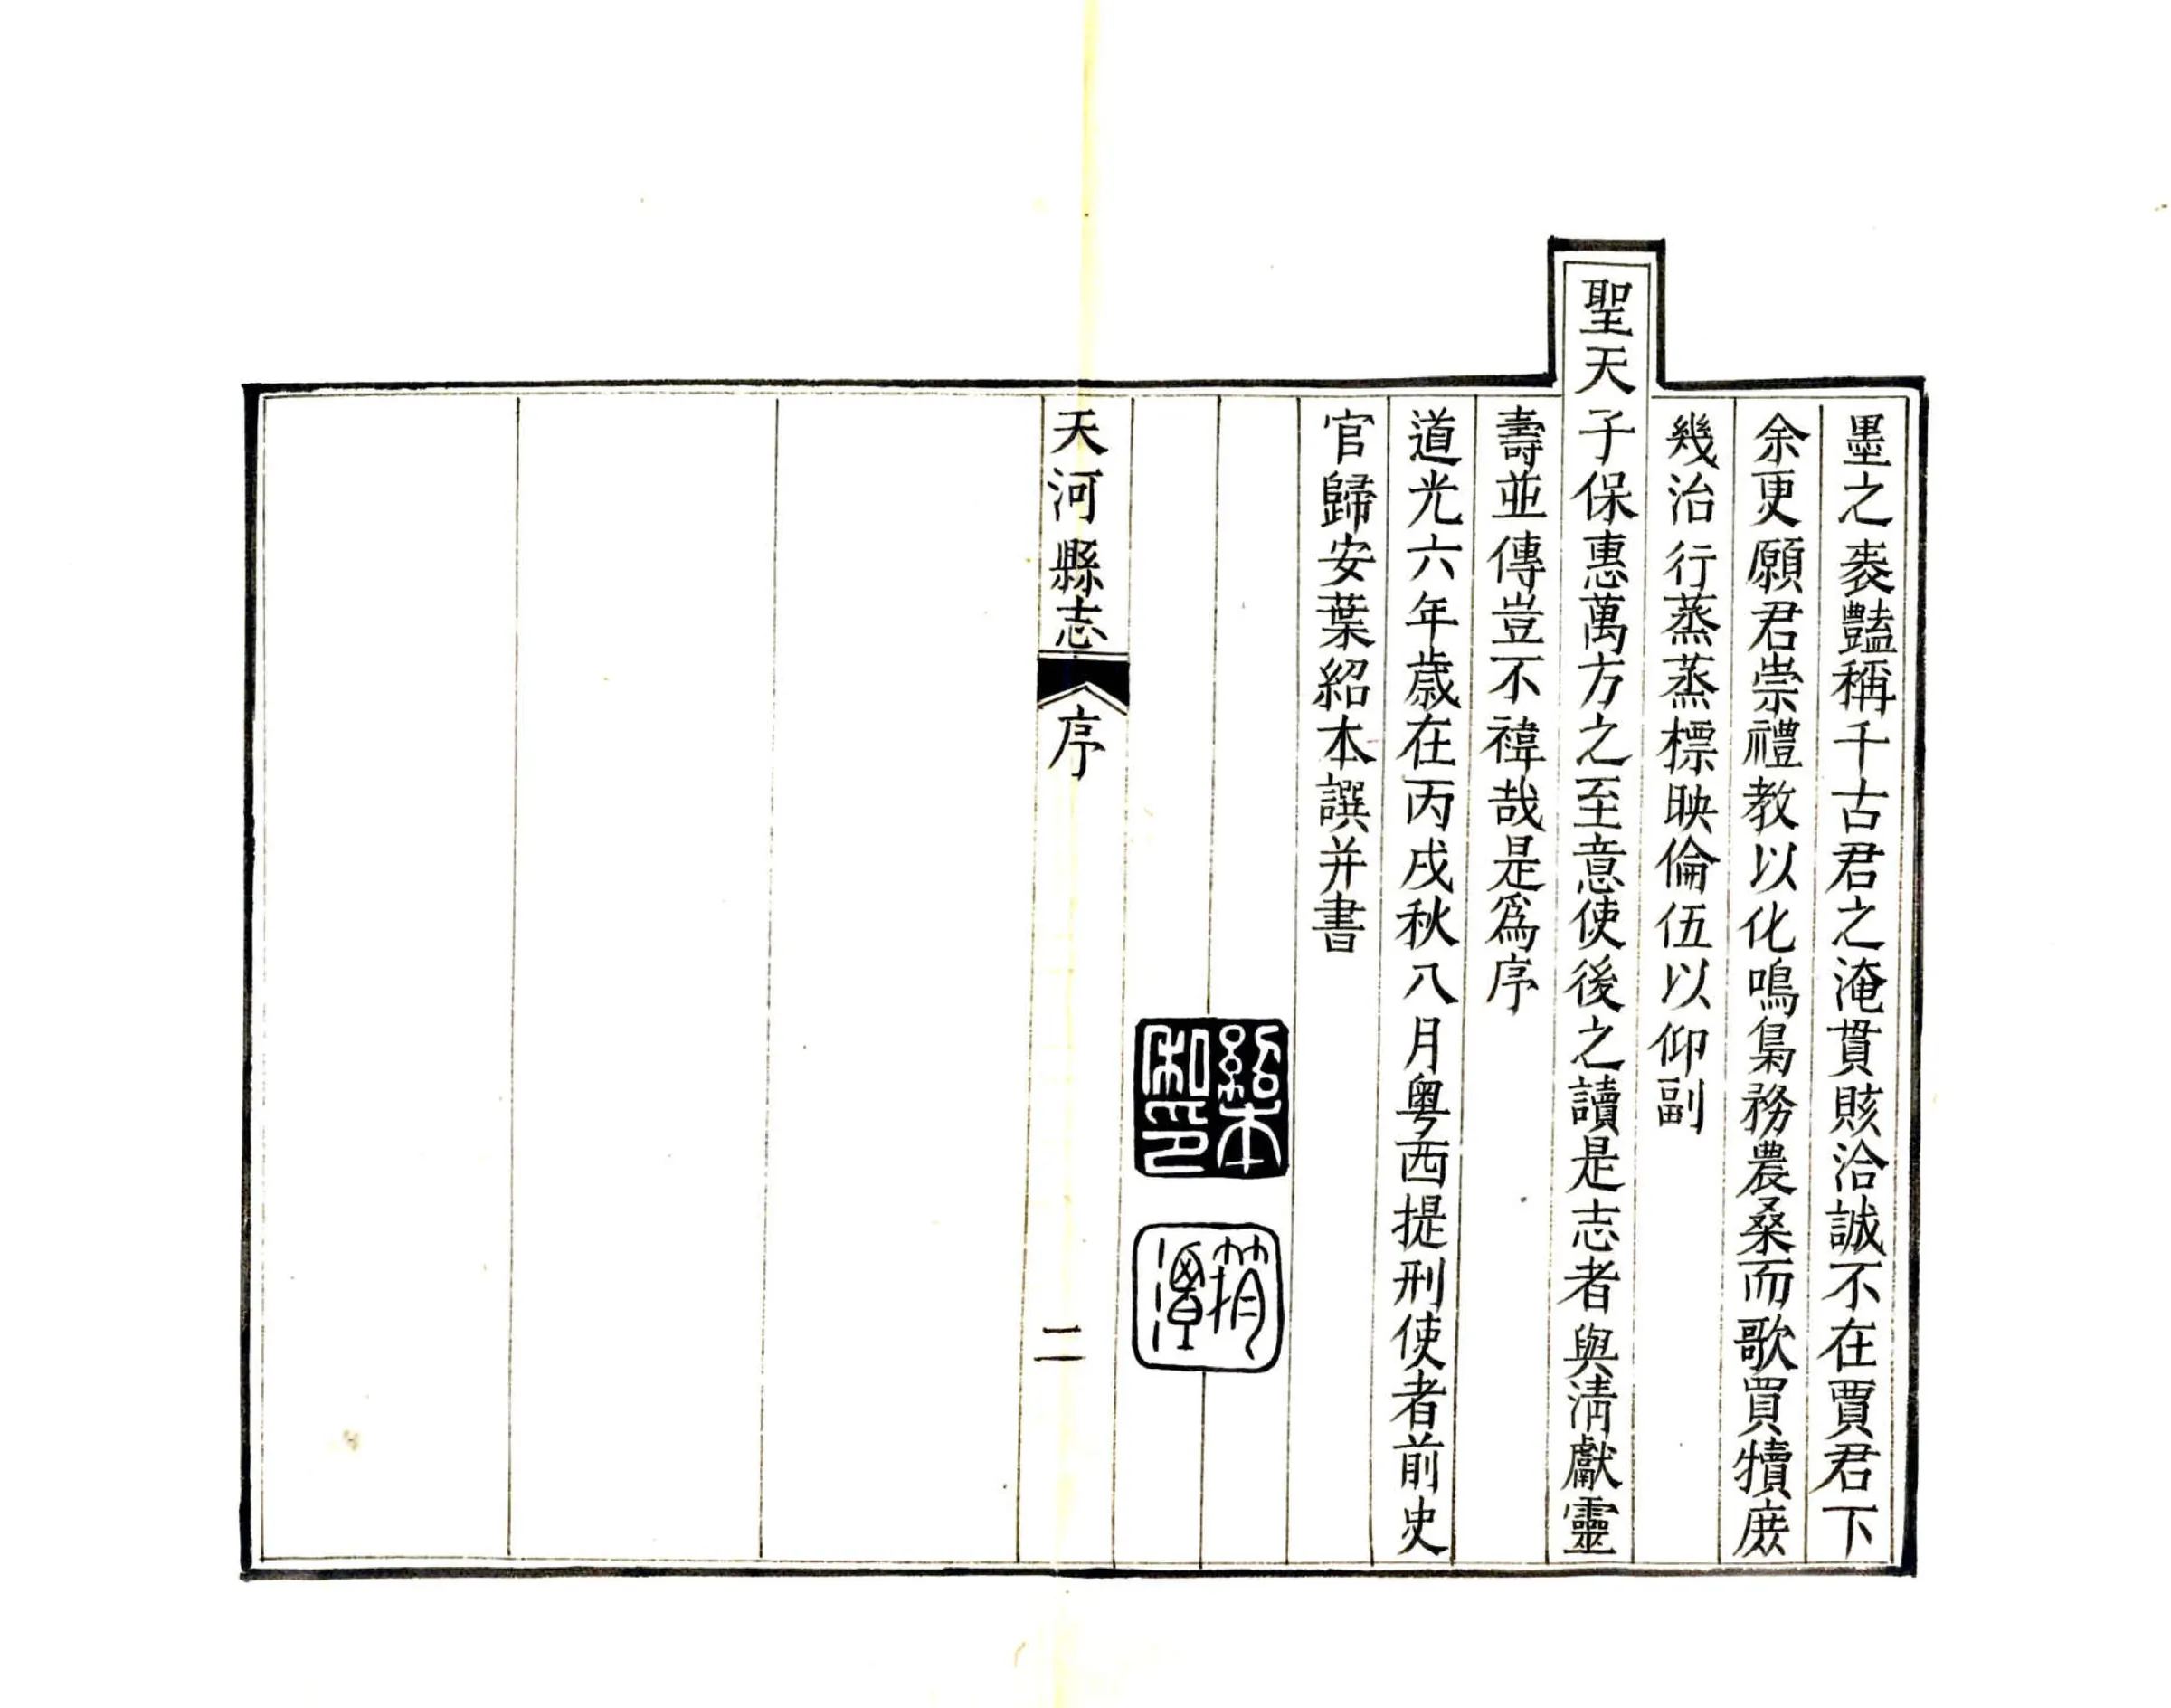 墨之裘豔稱千古君之淹貫賅洽誠不在賈君下
余更願君崇禮教以化鳴梟務農桑而歌買犢庻
幾治行蒸蒸標映倫伍以仰副
聖天子保惠萬方之至意使後之讀是志者與清獻靈
壽並傳豈不禕哉是爲序
道光六年歲在丙戌秋八月粵西提刑使者前史
官歸安葉紹本譔并書
紹本
私印
筠潭
天河縣志
序
二